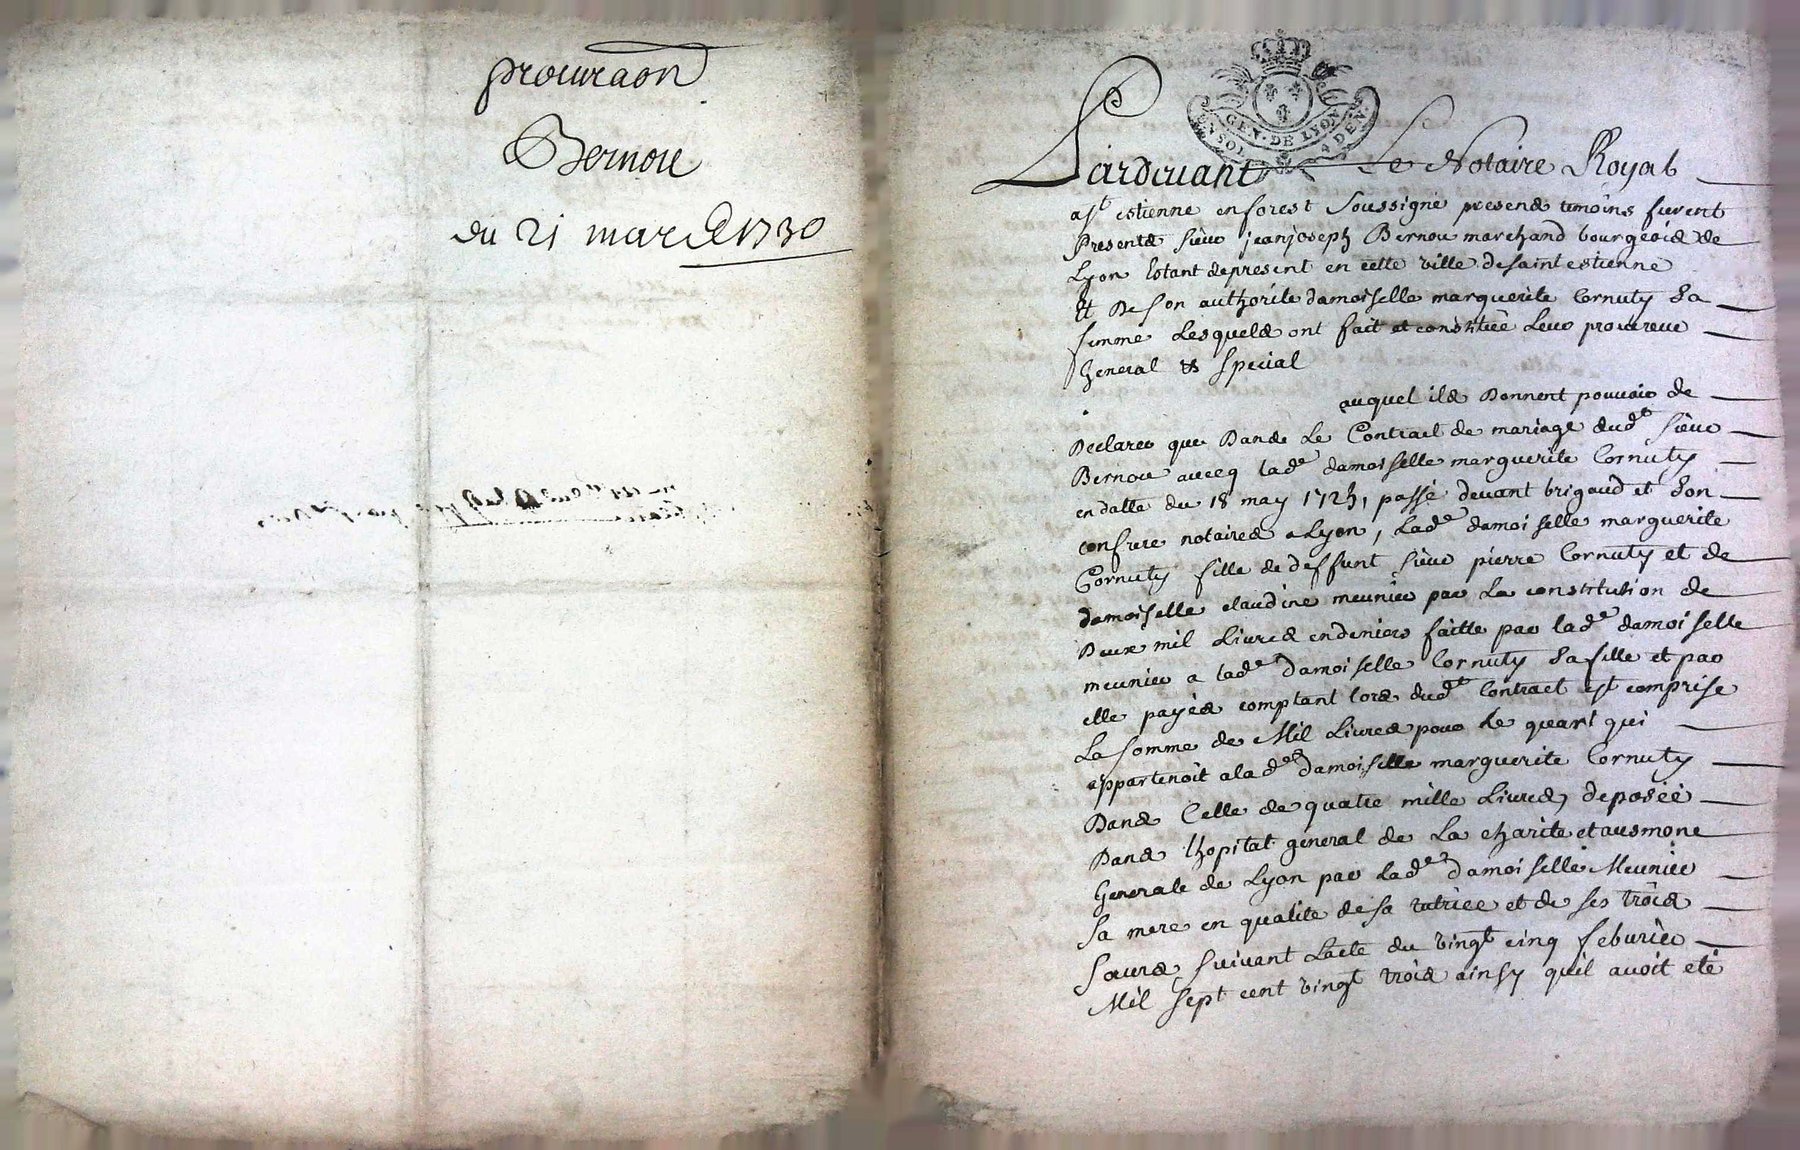 procuraon
Bernou
du 21 mars 1730
GEN · DE LYON
Pardevant Le Notaire Royal
a St estienne en forest Soussigné presens temoins furent
Presents sieur jean joseph Bernou marchand bourgeois de
Lyon Estant de present en cette ville de saint estienne
Et De son authorité damoiselle marguerite Cornuty Sa
femme Lesquels ont fait et constitué Leur procureur
General & special
auquel ils Donnent pouvoir de
Declarer que Dans Le Contract de mariage dudt sieur
Bernou avecq lade damoiselle marguerite Cornuty
en datte du 18 may 1725, passé devant brigaud et Son
confrere notaires a Lyon, Lade damoiselle marguerite
Cornuty fille de deffunt sieur pierre Cornuty et de
damoiselle claudine meunier par La constitution de
Deux mil Livres en deniers faitte par lade damoiselle
meunier a lade damoiselle Cornuty Sa fille et par
elle payées comptant lors dudt Contract est comprise
La somme de Mil Livres pour Le quart qui
appartenoit a lade damoiselle marguerite Cornuty
Dans Celle de quatre mille Livres, deposée
Dans lhopital general de La charite et ausmone
Generale de Lyon par Lade damoiselle Meunier
Sa mere en qualite de sa tutrice et de ses trois
Sœurs suivant Lacte du vingt cinq feburier
Mil sept cent vingt trois ainsy quil avoit eté